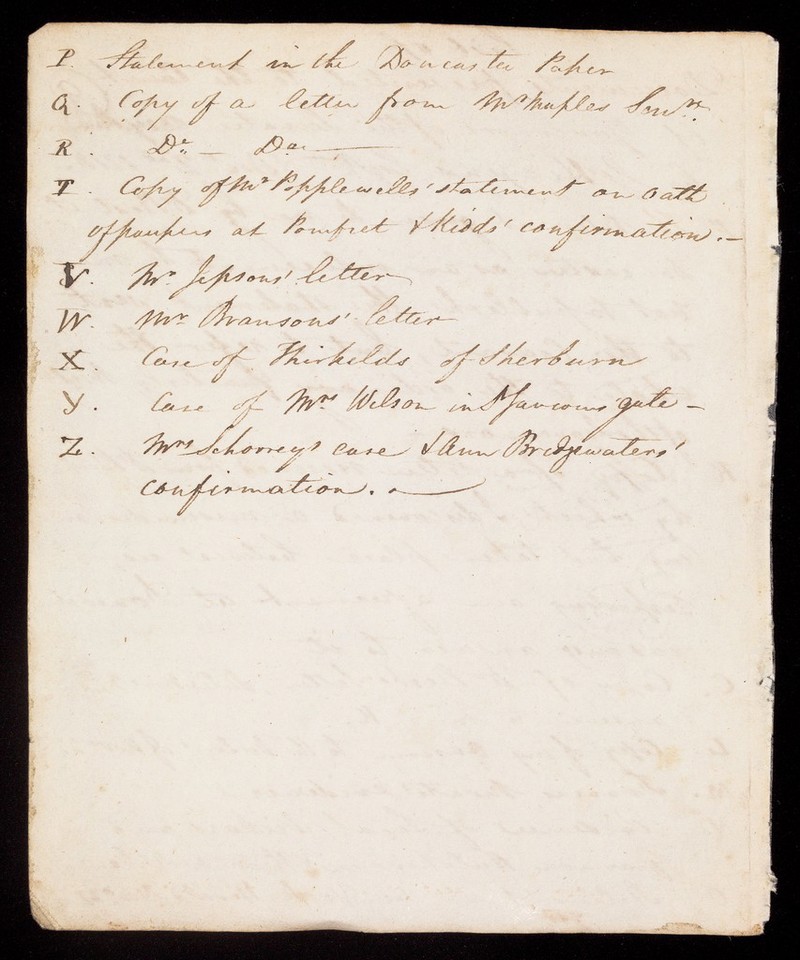 P. Statement in the Doncaster Paper
Q. Copy of a letter from Mr Maples Senr.
R. Do. — Do. —
T. Copy of Mr Popplewells' statement on oath
of paupers at Pomfret & Kidds' confirmation. —
V. Mr. Jepsons' letter
W. Mr Bransons' letter
X. Case of Thirkelds of Sherburn
Y. Case of Mrs Wilson in St Saviours' gate —
Z. Mrs Schorrey's case & Ann Bridgewaters'
confirmation. —